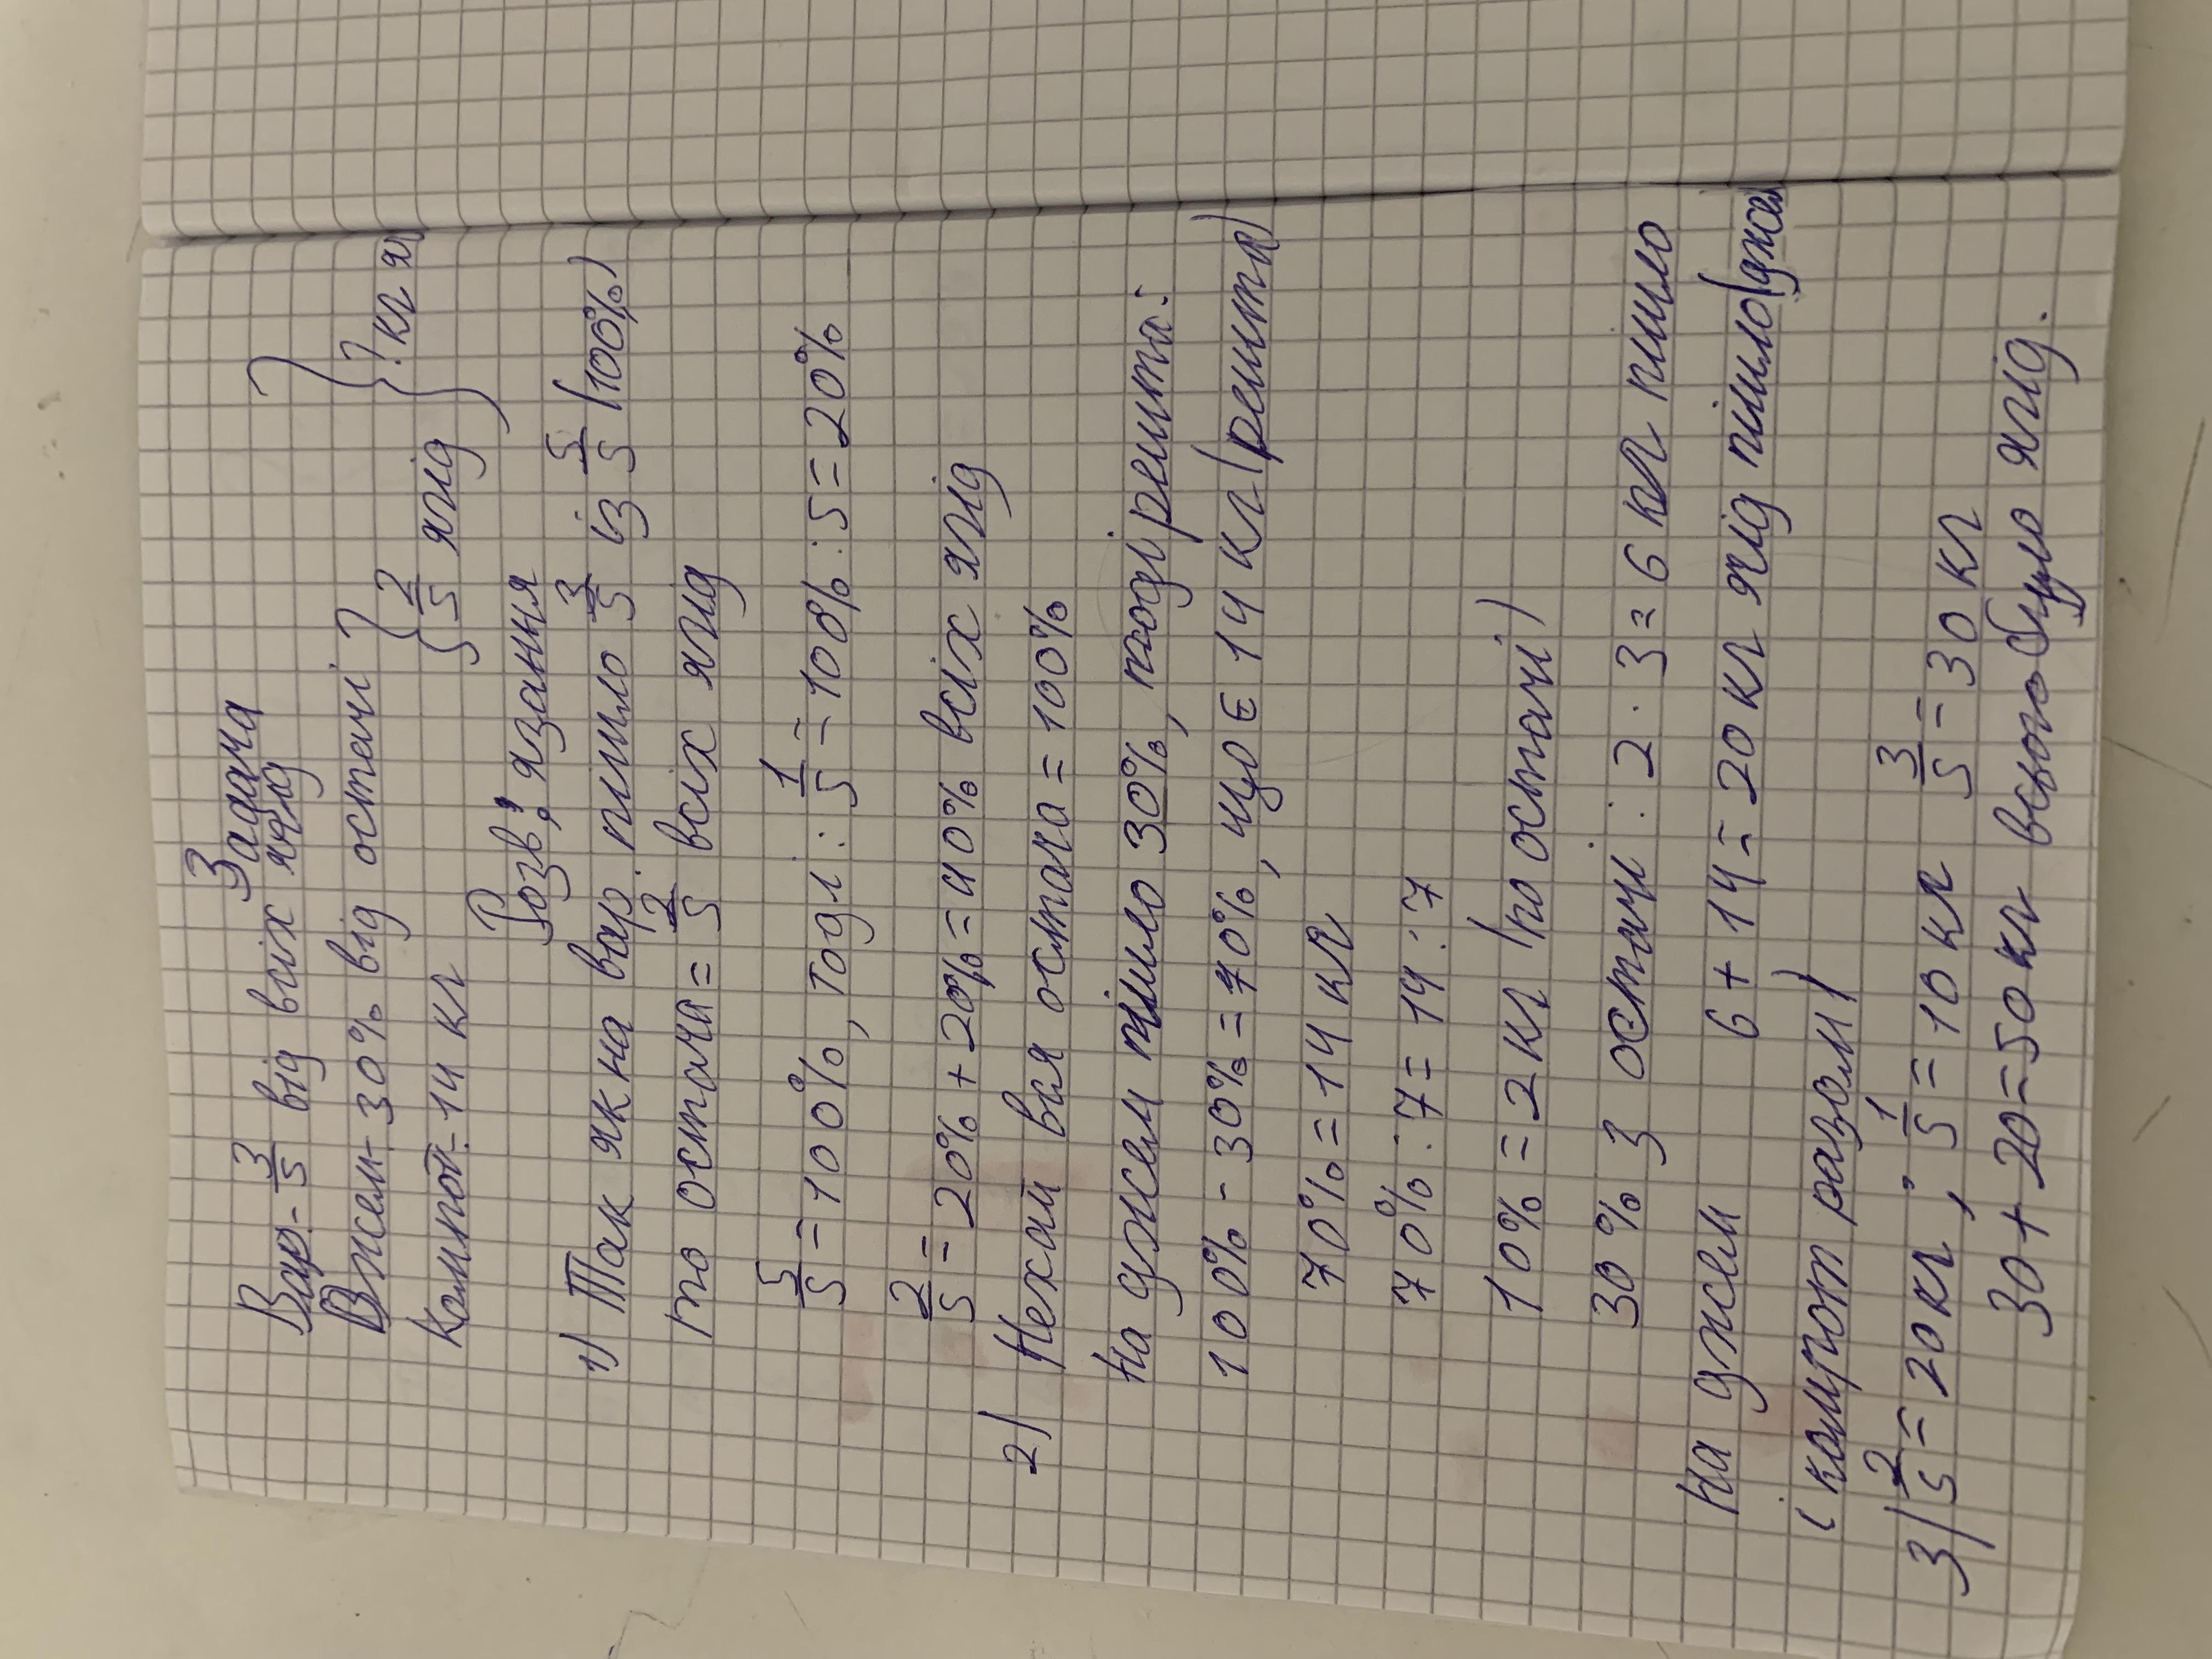 Задача
Вар. - 3/5 від всіх ягід
Джем - 30% від остачі } 2/5 ягід } ? кг я
Компот - 14 кг
Розв'язання
1) Так як на вар. пішло 3/5 із 5/5 (100%)
то остача = 2/5 всіх ягід
5/5 = 100%, тоді: 1/5 = 100% : 5 = 20%
2/5 = 20% + 20% = 40% всіх ягід
2) Нехай вся остача = 100%
На джем пішло 30%, тоді решта:
100% - 30% = 70%, що є 14 кг (решта)
70% = 14 кг
70% : 7 = 14 : 7
10% = 2 кг (по остачі)
30% з остачі : 2 · 3 = 6 кг пішло
На джем 6 + 14 = 20 кг ягід пішло (джем
і компот разом)
3) 2/5 = 20 кг; 1/5 = 10 кг 3/5 = 30 кг
30 + 20 = 50 кг всього було ягід.